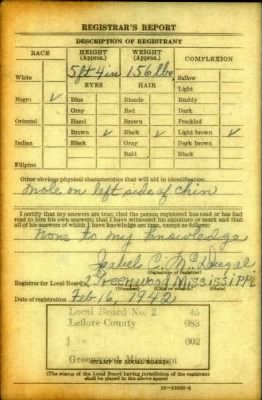 REGISTRAR'S REPORT
DESCRIPTION OF REGISTRANT
RACE HEIGHT (Approx.) WEIGHT (Approx.) COMPLEXION
White 5 ft 4 in 156 lbs. Sallow
EYES HAIR Light
Negro ✓ Blue Blonde Ruddy
Gray Red Dark
Oriental Hazel Brown Freckled
Brown ✓ Black ✓ Light brown ✓
Indian Black Gray Dark brown
Bald Black
Filipino
Other obvious physical characteristics that will aid in identification
mole on left side of chin
I certify that my answers are true; that the person registered has read or has had
read to him his own answers; that I have witnessed his signature or mark and that
all of his answers of which I have knowledge are true, except as follows:
None to my knowledge
(Signature of registrar)
Registrar for Local Board 2 Greenwood Mississippi
(Number) (City or county) (State)
Date of registration Feb 16, 1942
Local Board No. 2 45
Leflore County 083
002
Greenwood, Mississippi
STAMP OF LOCAL BOARD
(The stamp of the Local Board having jurisdiction of the registrant
shall be placed in the above space)